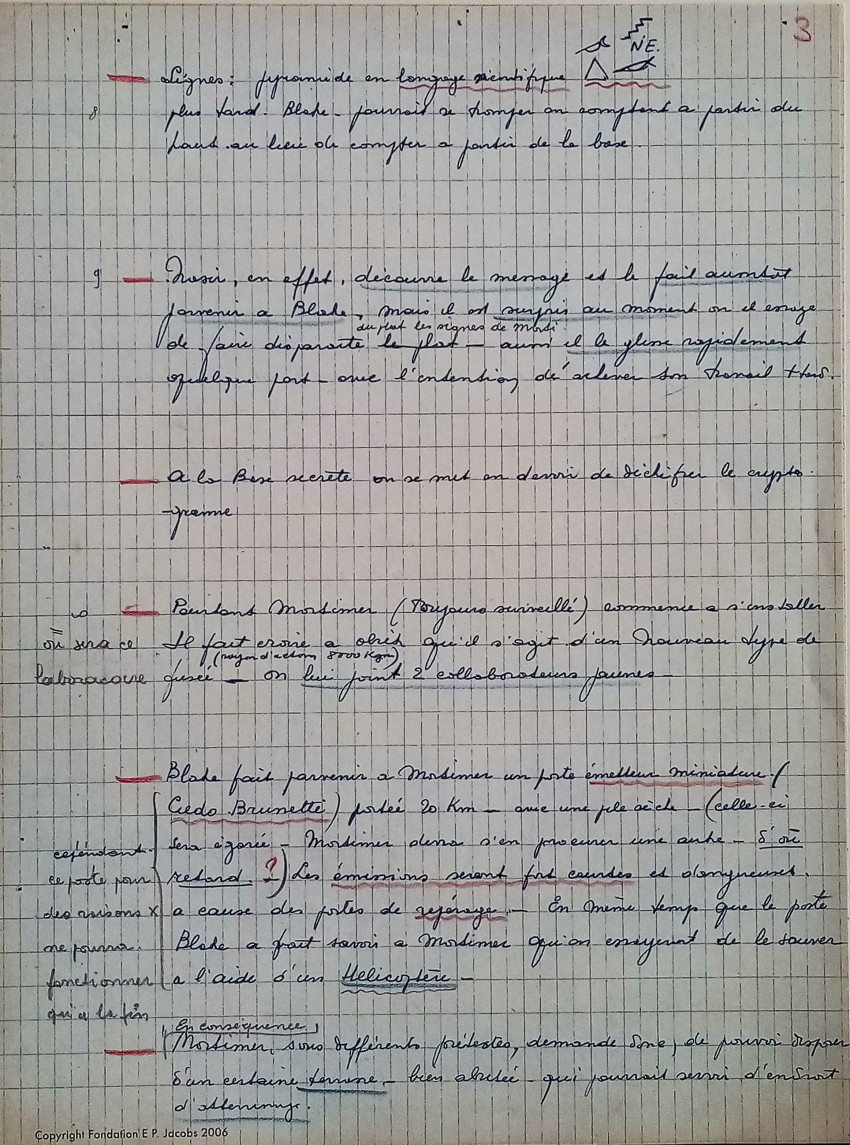 3
N.E.
— Lignes : pyramide en langage scientifique
8 plus tard. Blake - pourrait se tromper en comptant a partir du
haut au lieu de compter a partir de la base.
9 — Nasir, en effet, découvre le message et le fait aussitôt
parvenir a Blake, mais il est surpris au moment ou il essaye
du plat les signes de Morti
de faire disparaitre le plat - aussi il le glisse rapidement
quelque part - avec l'intention d'achever son travail + tard.
— A la Base secrète on se met en devoir de déchiffrer le crypto-
gramme
10 — Pourtant Mortimer (Toujours surveillé) commence a s'installer
où sera ce Il fait croire a Olrik qu'il s'agit d'un nouveau type de
(rayon d'action 8000 Kgm)
laboratoire fusée — on lui joint 2 collaborateurs jaunes —
— Blake fait parvenir a Mortimer un poste émetteur miniature (
Cedo Brunetti) portée 20 Km — avec une pile sèche — (celle-ci
cependant sera égarée - Mortimer devra s'en procurer une autre - d'où
ce poste pour retard. ?) Les émissions seront fort courtes et dangereuses.
des raisons X a cause des postes de repérage. — En même temps que le poste
ne pourra Blake a fait savoir a Mortimer qu'on essayerait de le sauver
fonctionner a l'aide d'un Hélicoptère —
qu'a la fin
En conséquence,
— Mortimer, sous différents prétextes, demande de pouvoir disposer
d'un certaine terrasse - bien abritée - qui pourrait servir d'endroit
d'atterrissage.
Copyright Fondation E P. Jacobs 2006